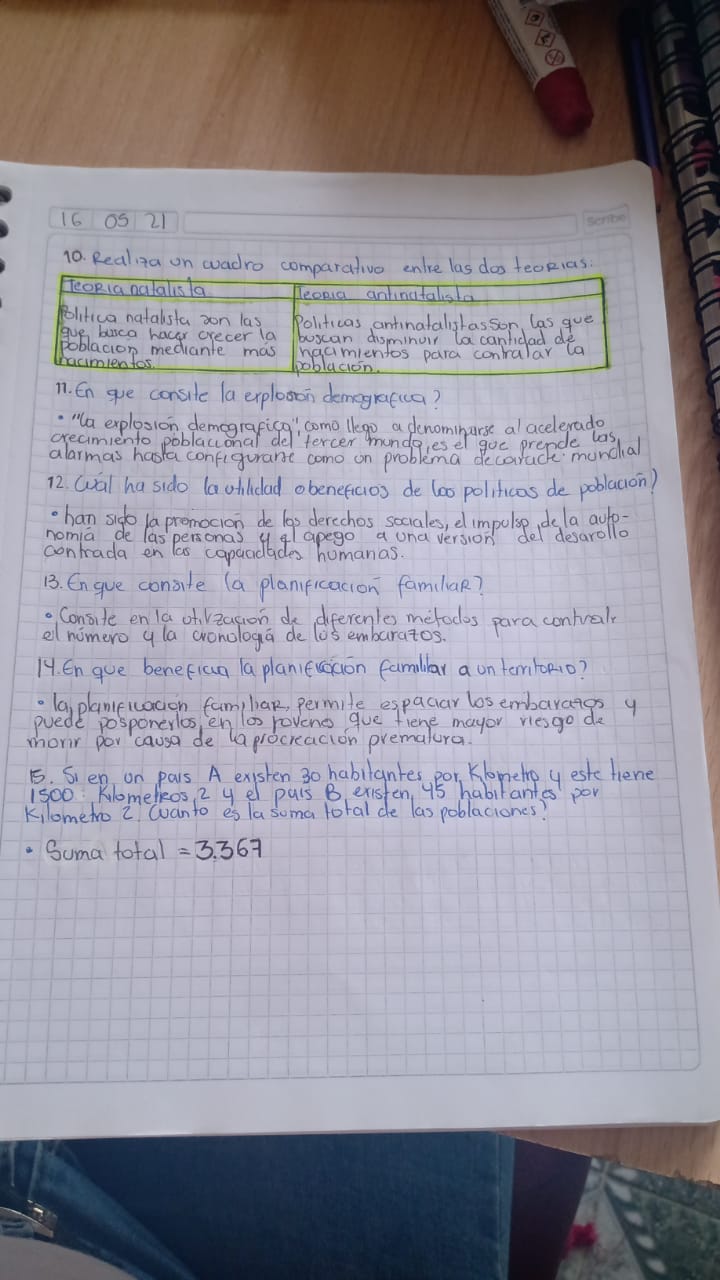 16 05 21
Scribe
10. Realiza un cuadro comparativo entre las dos teorias.
Teoria natalista
Teoria antinatalista
Politica natalista son las
que busca hacer crecer la
poblacion mediante mas
nacimientos.
Politicas antinatalistas son las que
buscan disminuir la cantidad de
nacimientos para contralar la
población.
11. En que consite la explosión demografica?
• "la explosión demografica", como llego a denominarse al acelerado
crecimiento poblacional del tercer mundo, es el que prende las
alarmas hasta configurarse como un problema de caracte. mundial
12. Cuál ha sido la utilidad o beneficios de los politicas de población?
• han sido la promoción de los derechos sociales, el impulso de la auto-
nomía de las personas y el apego a una version del desarollo
contrada en las capacidades humanas.
13. En que consite la planificación familiar?
• Consite en la utilización de diferentes métodos para contralr
el número y la cronologia de los embarazos.
14. En que beneficia la planificación familiar a un territorio?
• la planificación familiar, permite espaciar los embarazos y
puede posponerlos, en los jovenes que tiene mayor riesgo de
morir por causa de la procreación prematura.
15. Si en un pais A existen 30 habitantes por Kilometro y este tiene
1500 Kilometros 2 y el pais B existen 45 habitantes por
Kilometro 2 Cuanto es la suma total de las poblaciones?
• Suma total = 3.367